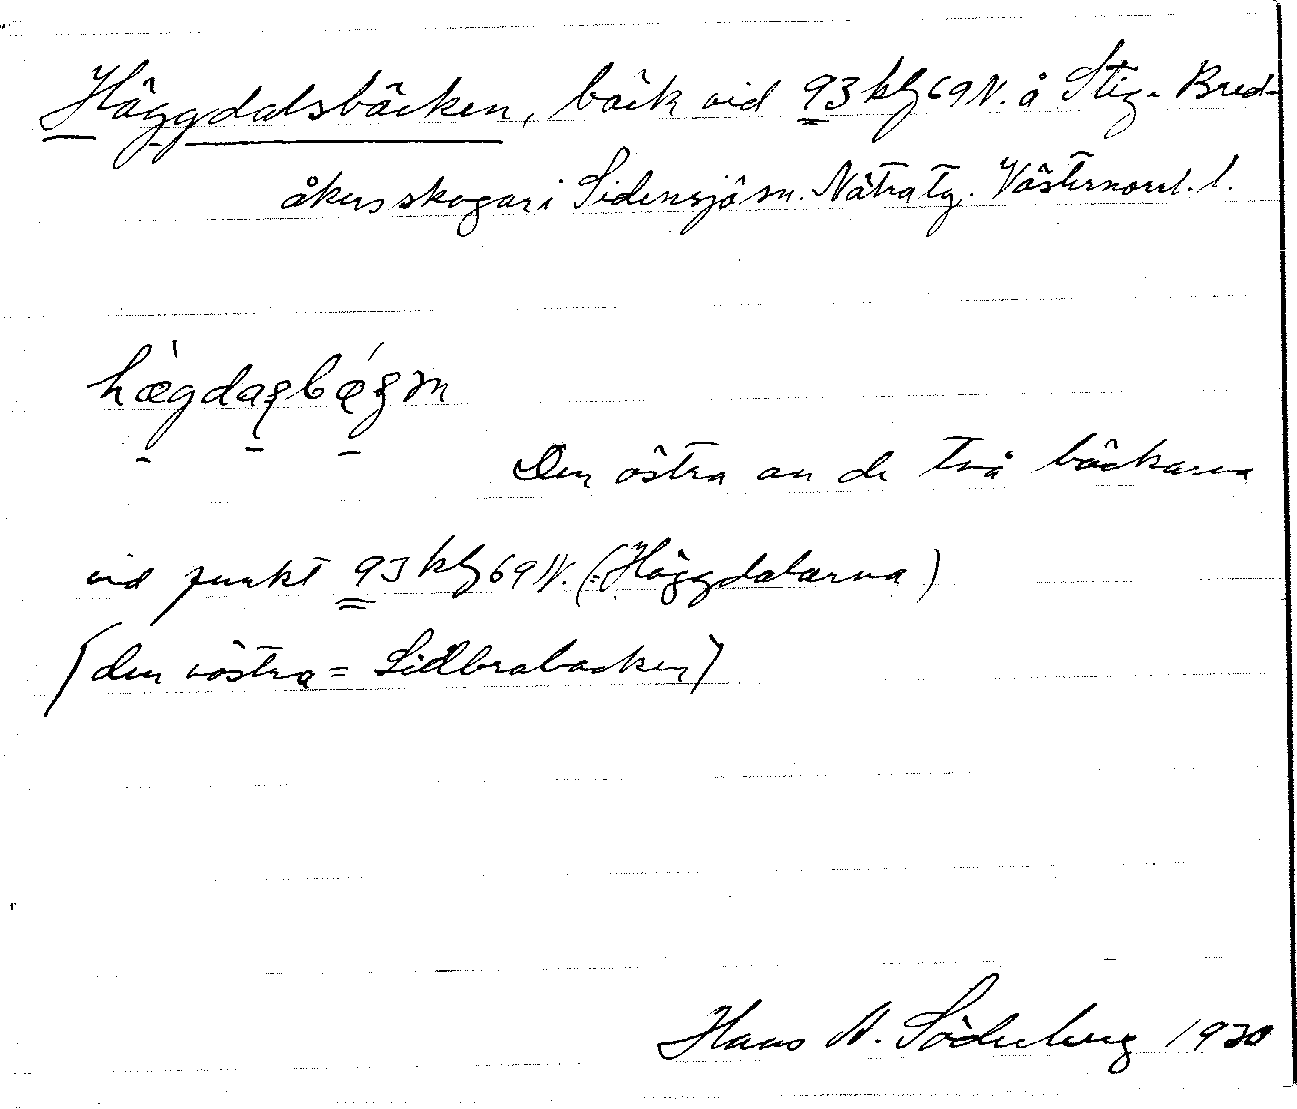 Häggdalsbäcken, bäck vid 93 kg 69 N. å Stig- Bred-
åkers skogar i Sidensjö sn. Nätra tg. Västernorrl. l.
Den östra av de två bäckarna
vid punkt 93 kg 69 N. (= Häggdalarna)
(den västra = Lidbrabäcken)
Hans A. Söderberg 1930